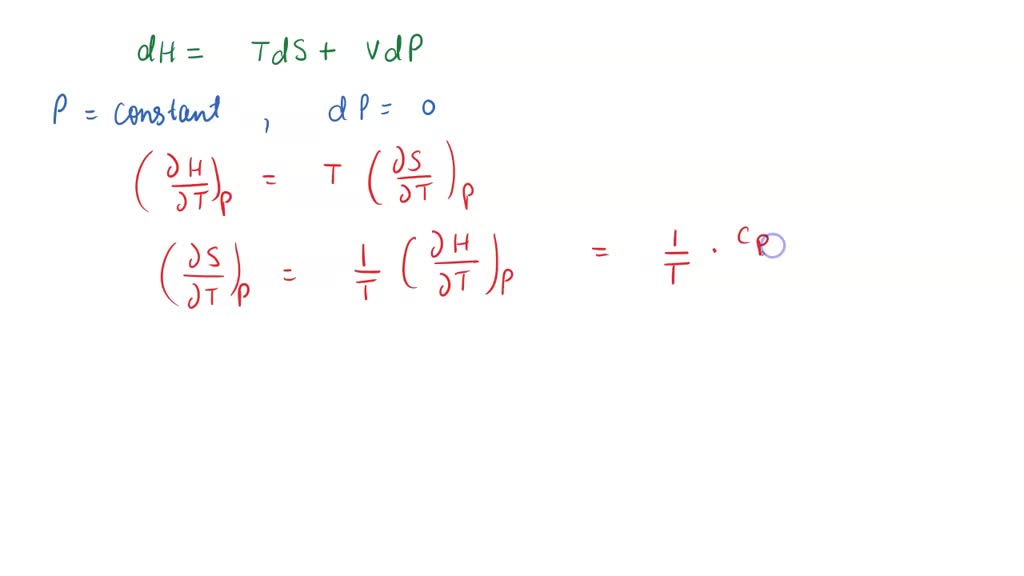 dH = TdS + VdP
P = constant , dP = 0
(∂H/∂T)_P = T (∂S/∂T)_P
(∂S/∂T)_P = 1/T (∂H/∂T)_P = 1/T . C_P